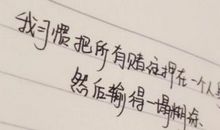 我习惯把所有赌注押在一个人
然后输得一塌糊涂